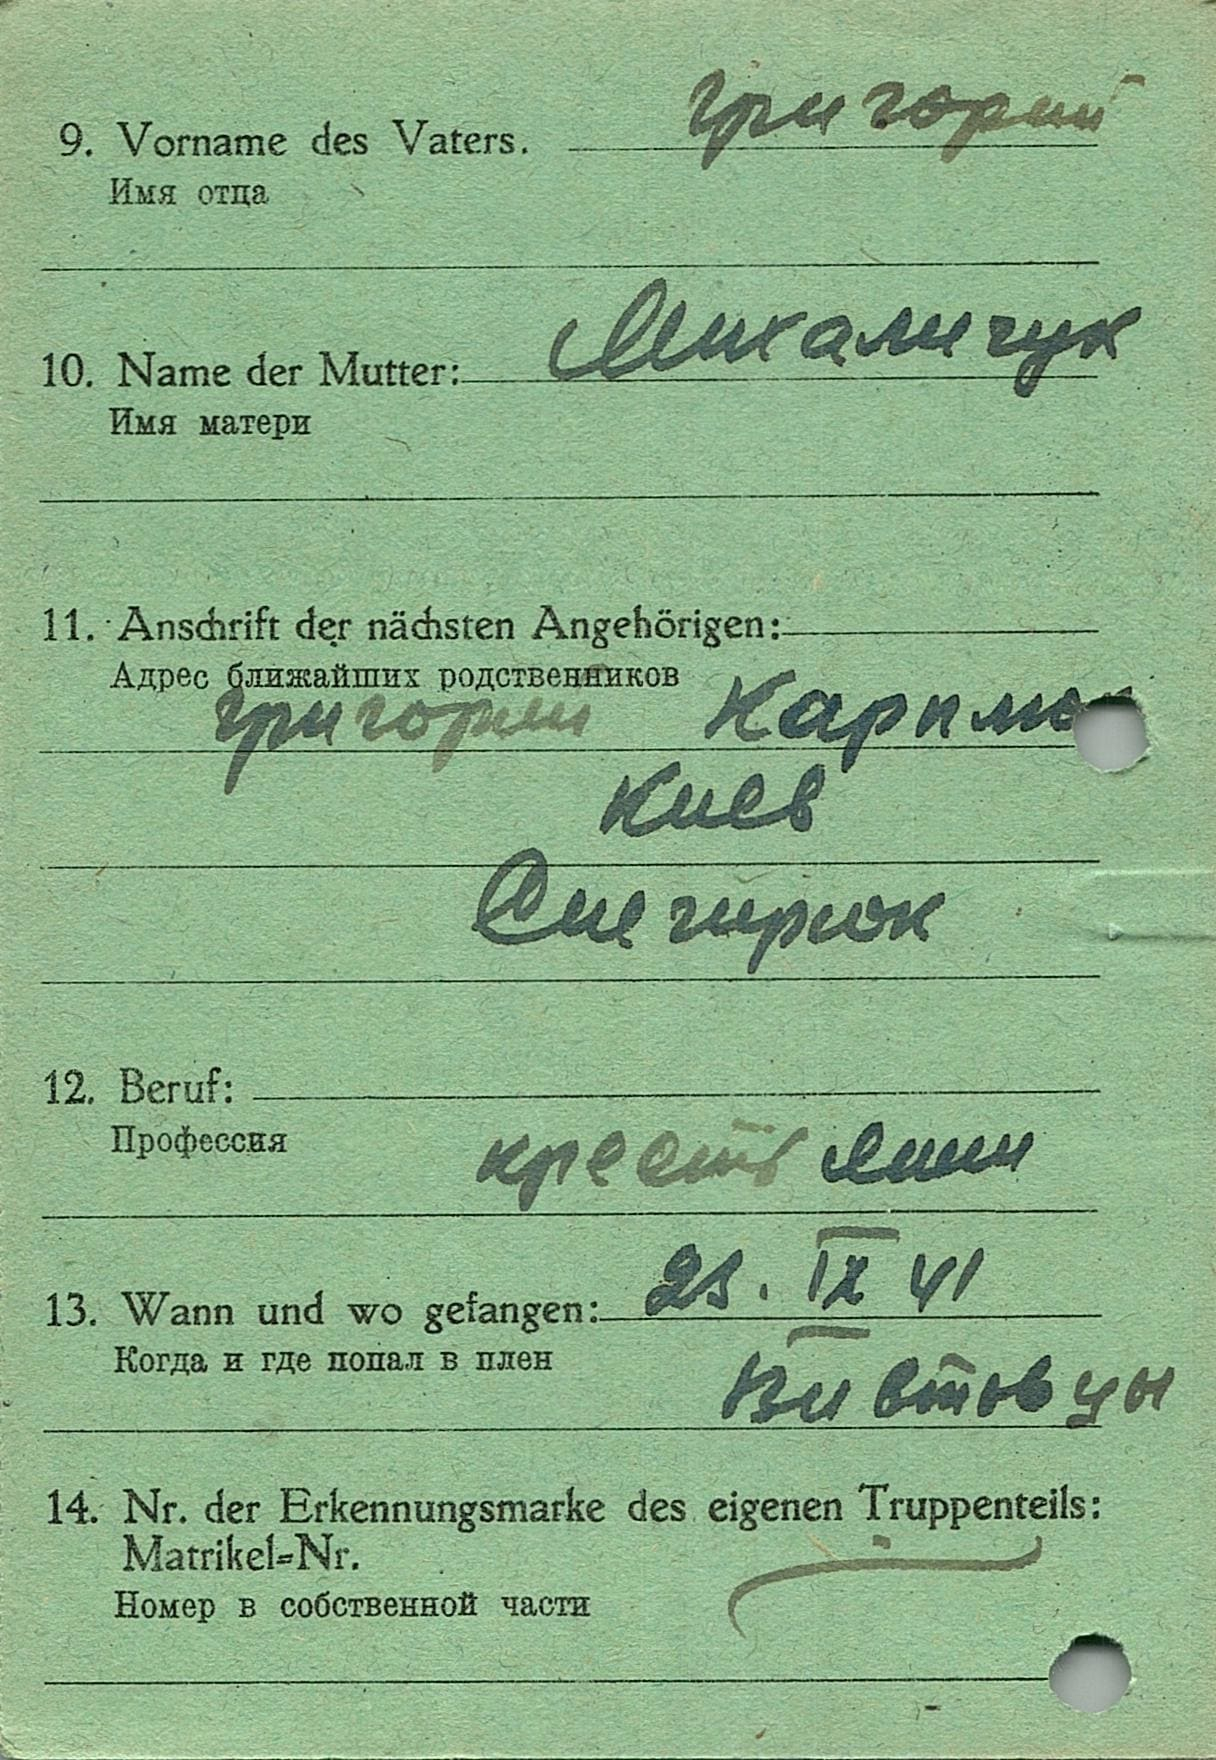 9. Vorname des Vaters. Григорий
Имя отца
10. Name der Mutter: Михаличук
Имя матери
11. Anschrift der nächsten Angehörigen:
Адрес ближайших родственников
Григорий
Киев
Снегирюк
12. Beruf:
Профессия
крестьянин
13. Wann und wo gefangen: 23. IX 41
Когда и где попал в плен
14. Nr. der Erkennungsmarke des eigenen Truppenteils:
Matrikel-Nr.
Номер в собственной части